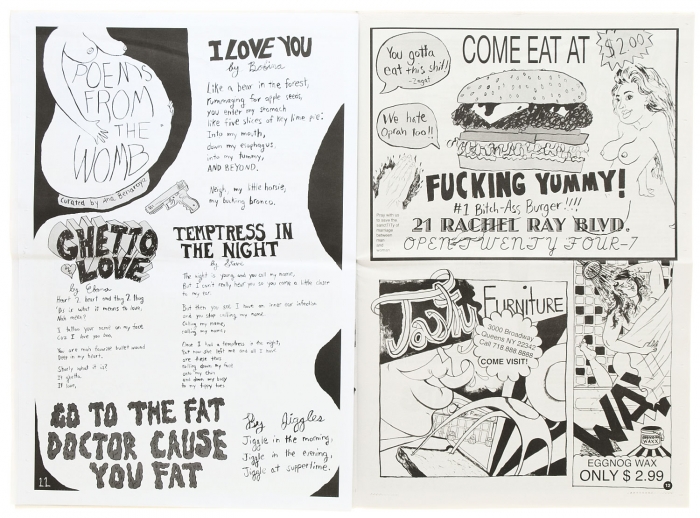 POEMS
FROM
THE
WOMB
Curated by Ana Benaroya
I LOVE YOU
by Bobina
Like a bear in the forest,
rummaging for apple seeds,
you enter my stomach
like five slices of key lime pie:
Into my mouth,
down my esophagus,
into my tummy,
AND BEYOND.
Neigh, my little horsie,
my bucking bronco.
GHETTO
LOVE
by Ebona
Heart 2 heart and thug 2 thug
'Dis is what it means to love,
Nah mean?
I tattoo your name on my face
Cuz I love you boo,
You are main favorite bullet wound
Deep in my heart,
Shorty what it is?
It ghetto,
It luv,
TEMPTRESS IN
THE NIGHT
by
The night is young and you call my name,
But I can't really hear you so you come a little closer
to my ear,
But then you see I have an inner ear infection
and you stop calling my name,
Calling my name,
calling my name,
Once I had a temptress in the night,
but now she left me and all I have
are these tears
rolling down my face
onto my chin
and down my body
to my tippy toes.
GO TO THE FAT
DOCTOR CAUSE
YOU FAT
By Jiggles
Jiggle in the morning,
Jiggle in the evening,
Jiggle at suppertime.
11
You gotta
eat this shit!!
-Zagat
COME EAT AT
$2.00
We hate
Oprah too!!
FUCKING YUMMY!
#1 Bitch-Ass Burger!!!!
Pray with us
to save the
sanctity of
marriage
between
man
and
21 RACHEL RAY BLVD.
OPEN TWENTY FOUR-7
FURNITURE
3000 Broadway
Queens NY 22342
Call 718 888 8888
COME VISIT!
WAX
EGGNOG WAX
ONLY $ 2.99
12